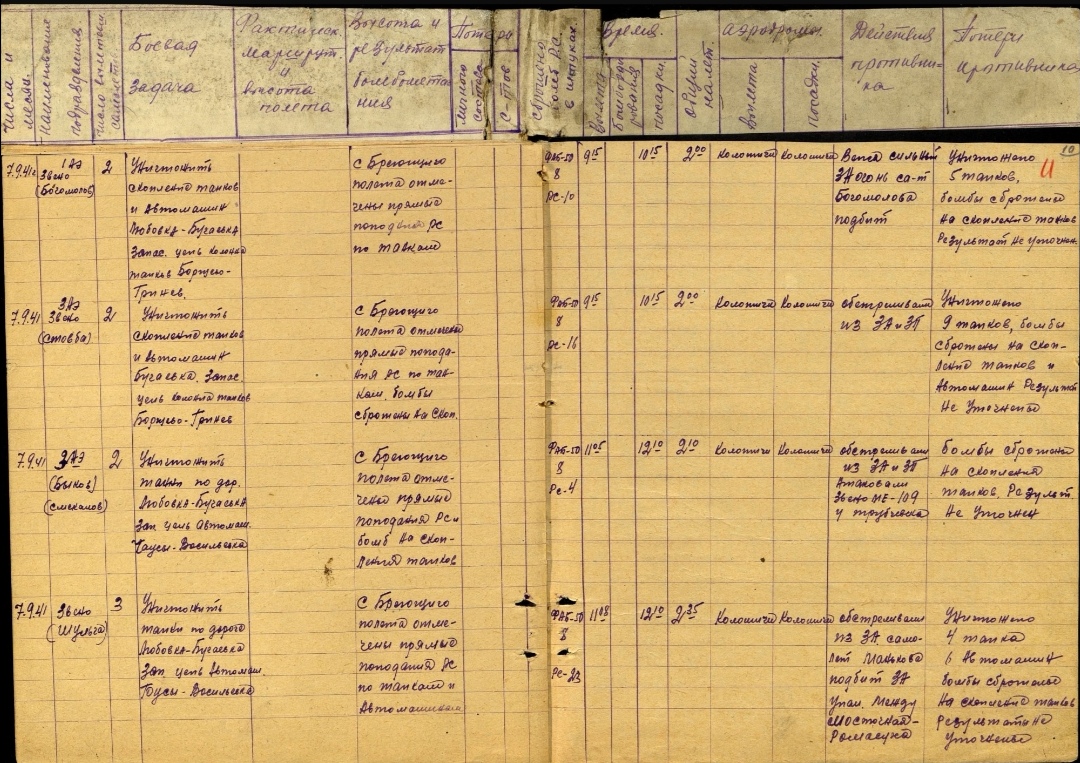 числа и месяц.
наименование подразделения
число вылетавш. самолетов
Боевая
задача
Фактическ.
маршрут.
и
высота
полета
Высота и
результат
бомбомета-
ния
Потери
личного состава
с-тов
сброшено бомб
в штуках.
Время.
вылета
бомбодир
рования
посадки
общий налет.
аэродромы
вылета
посадки.
Действия
противни-
ка
Потери
противника
10
7.9.41г
1АЭ
Звено
(Богомолов)
2
Уничтожить
скопление танков
и Автомашин
Любовка-Бугаевка
Запас. цель колонна
танков Борщево-
Гринев.
С Бреющего
полета отме-
чены прямые
попадания РС
по танкам
ФАБ-50
8
РС-10
9 15
10 15
2 00
Колопичи
Колопичи
Вепса сильный
ЗА огонь са-т
Богомолова
подбит
Уничтожено
5 танков,
бомбы сброшены
на скопление танков
Результат не уточнен
7.9.41
3АЭ
Звено
(Стовба)
2
Уничтожить
скопление танков
и Автомашин
Бугаевка. Запас.
цель колонна танков
Борщево-Гринев
С Бреющего
полета отмечены
прямые попада-
ния РС по тан-
кам. бомбы
сброшены на скоп.
ФАБ-50
8
РС-16
9 15
10 15
2 00
Колопичи
Колопичи
обстреливали
из ЗА и ЗП
Уничтожено
9 танков, бомбы
сброшены на скоп-
ление танков и
Автомашин Результ
Не Уточнены
7.9.41
3АЭ
(Быков)
(Смекалов)
2
Уничтожить
танки по дор.
Любовка-Бугаевка
Зап. цель Автомаш.
Гаусы-Васильевка
С Бреющего
полета отме-
чены прямые
попадания РС и
бомб на скоп-
ления танков
ФАБ-50
8
РС-4
11 05
12 10
2 10
Колопичи
Колопичи
обстреливали
из ЗА и ЗП
Атаковали
Звено МЕ-109
у трубчевска
Бомбы сброшены
на скопления
танков. Результ.
Не Уточнен
7.9.41
Звено
(Шульга)
3
Уничтожить
танки по дороге
Любовка-Бугаевка
Зап. цель Автомаш.
Гаусы-Васильевка
С Бреющего
полета отме-
чены прямые
попадания РС
по танкам и
Автомашинам
ФАБ-50
8
РС-23
11 08
12 10
2 25
Колопичи
Колопичи
обстреливали
из ЗА само-
лет Манькова
подбит ЗА
упал. Между
Восточная-
Ромасуха
Уничтожено
4 танка
6 Автомашин
бомбы сброшены
На скопление танков
Результаты не
уточнены